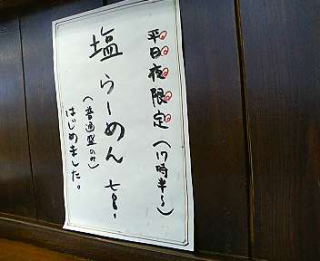 平日夜限定(17時半～)
塩らーめん 七8-
(普通盛のみ)
はじめました。